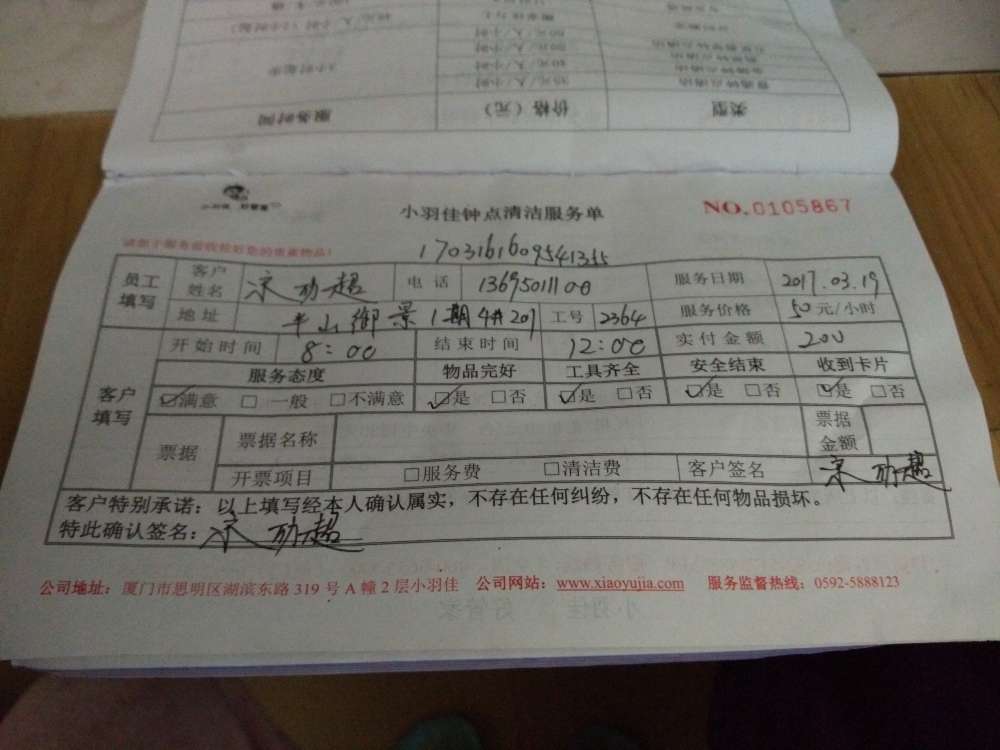 服务时间 价格（元） 类型
小羽佳 好管家
小羽佳钟点清洁服务单
NO.0105867
请您于服务前收检好您的贵重物品！
1703161609541355
员工填写 客户姓名 宋劢超 电话 13695011100 服务日期 2017.03.19
地址 半山御景1期4#201 工号 2364 服务价格 50元/小时
客户填写 开始时间 8:00 结束时间 12:00 实付金额 200
服务态度 物品完好 工具齐全 安全结束 收到卡片
☑满意 □一般 □不满意 ☑是 □否 ☑是 □否 ☑是 □否 ☑是 □否
票据 票据名称 票据金额
开票项目 □服务费 □清洁费 客户签名 宋劢超
客户特别承诺：以上填写经本人确认属实，不存在任何纠纷，不存在任何物品损坏。
特此确认签名：宋劢超
公司地址：厦门市思明区湖滨东路319号A幢2层小羽佳 公司网站：www.xiaoyujia.com 服务监督热线：0592-5888123